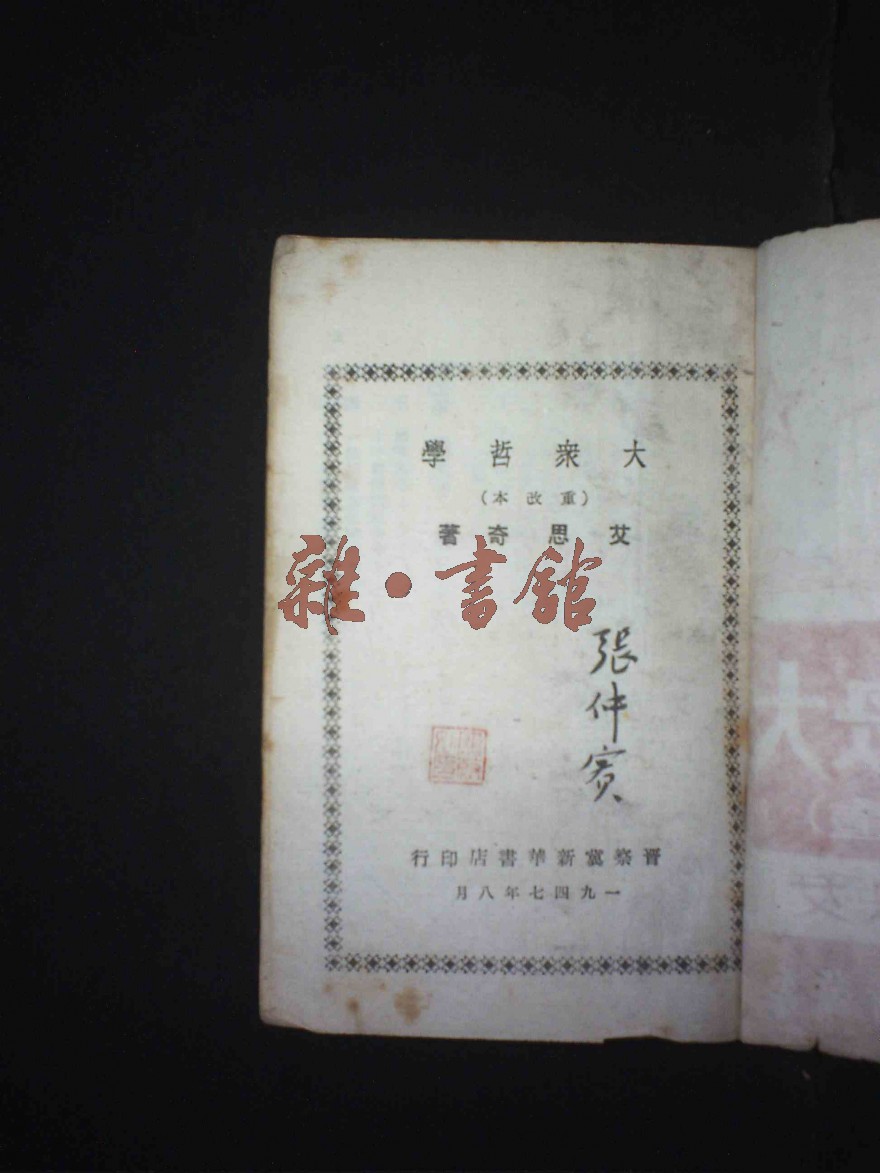 大衆哲學
（重改本）
艾思奇著
雜·書館
張仲實
晋察冀新華書店印行
一九四七年八月